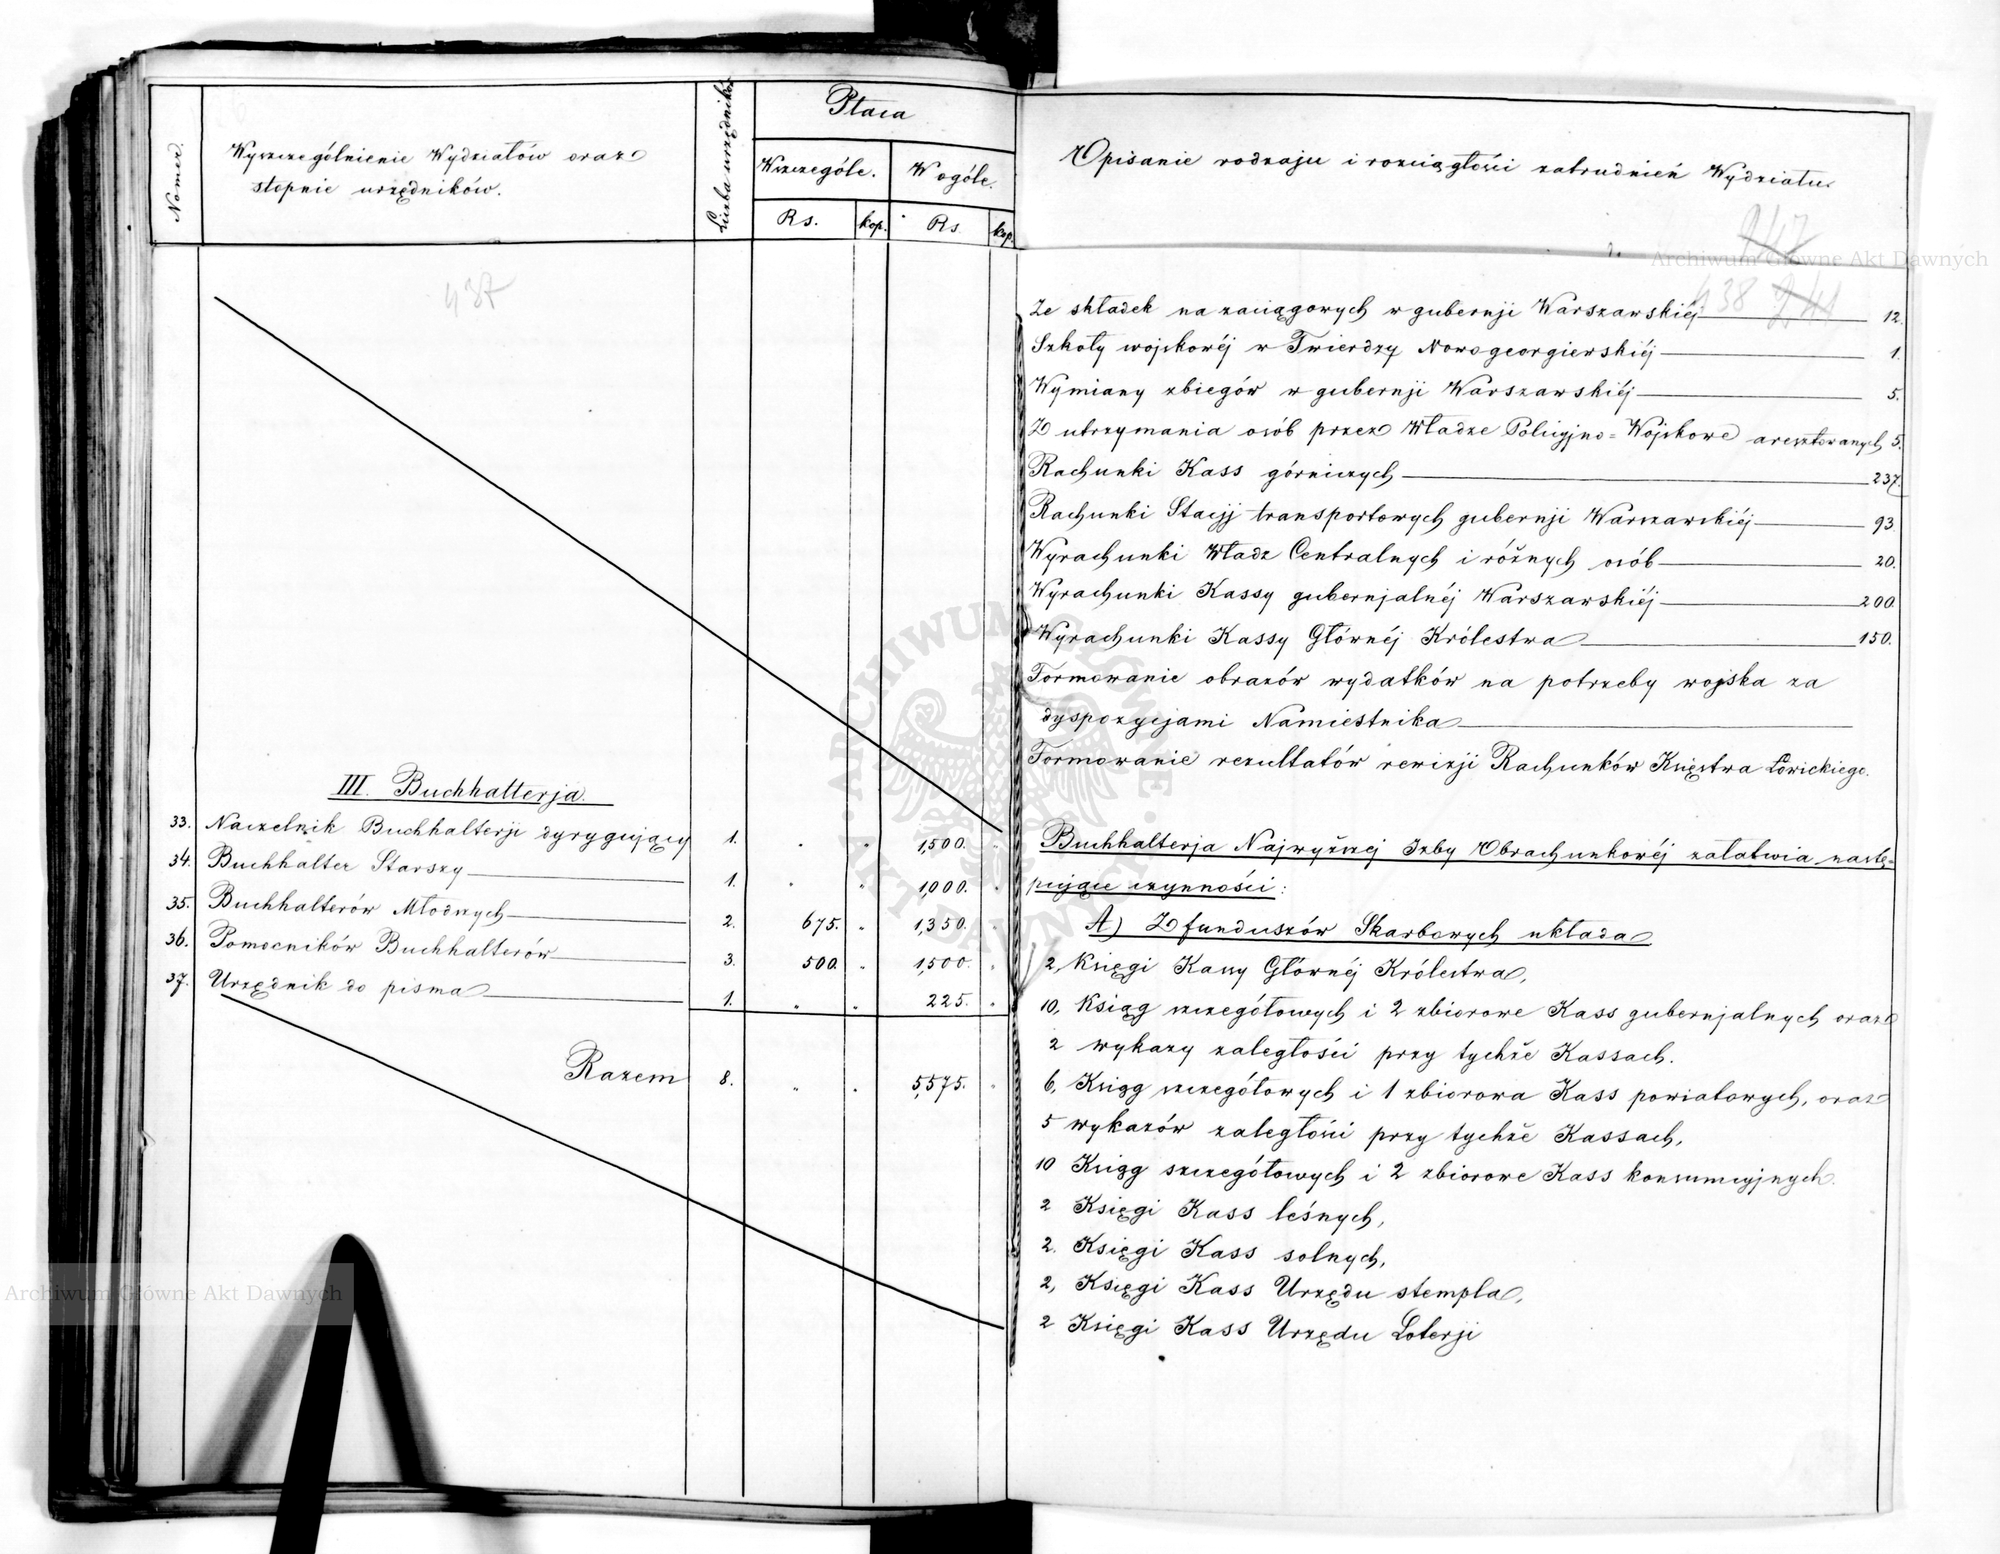 Numer.
Wyszczególnienie Wydziałów oraz
stopnie urzędników.
Liczba urzędników
Płaca
Wszczególe.
W ogóle.
Rs.
kop.
Rs.
kop.
437
III. Buchhalterja.
33. Naczelnik Buchhalterji dyrygujący 1. " " 1,500. "
34. Buchhalter Starszy 1. " " 1,000. "
35. Buchhalterów Młodszych 2. 675. " 1,350. "
36. Pomocników Buchhalterów 3. 500. " 1,500. "
37. Urzędnik do pisma 1. " " 225. "
Razem 8. " " 5,575. "
Opisanie rodzaju i rozciągłości zatrudnień Wydziału.
247
438 241
Ze składek na zaciągowych w gubernji Warszawskiéj 12.
Szkoły wojskowéj w Twierdzy Nowogeorgiewskiéj 1.
Wymiany zbiegów w gubernji Warszawskiéj 5.
Z utrzymania osób przez Władze Policyjno-Wojskowe aresztowanych 5.
Rachunki Kass górniczych 237.
Rachunki Stacyj transportowych gubernji Warszawskiéj 93
Wyrachunki Władz Centralnych i różnych osób 20.
Wyrachunki Kassy gubernjalnéj Warszawskiéj 200.
Wyrachunki Kassy Głównéj Królestwa 150.
Formowanie obrazów wydatków na potrzeby wojska za
dyspozycjami Namiestnika
Formowanie rezultatów rewizji Rachunków Księstwa Łowickiego.
Buchhalterja Najwyższej Izby Obrachunkowéj załatwia nastę-
pujące czynności:
A) Z funduszów Skarbowych układa
2, Księgi Kassy Głównéj Królestwa,
10, Ksiąg szczegółowych i 2 zbiorowe Kass gubernjalnych oraz
2 wykazy zaległości przy tychże Kassach.
6, Ksiąg szczegółowych i 1 zbiorowa Kass powiatowych, oraz
5 wykazów zaległości przy tychże Kassach,
10 Ksiąg szczegółowych i 2 zbiorowe Kass konsumcyjnych.
2 Księgi Kass leśnych,
2. Księgi Kass solnych,
2, Księgi Kass Urzędu stempla,
2 Księgi Kass Urzędu Loterji
Archiwum Główne Akt Dawnych
Archiwum Główne Akt Dawnych
ARCHIWUM GŁÓWNE AKT DAWNYCH